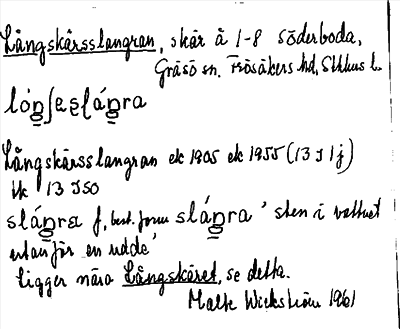 Långskärsslangran, skär å 1-8 Söderboda,
Gräsö sn. Frösåkers hd, Sthlms l.
Långskärsslangran ek 1905 ek 1955 (13 I 1j)
13 I SO
f, best. form 'sten i vattnet
utanför en udde'
ligger nära Långskäret, se detta.
Malte Wickström 1961